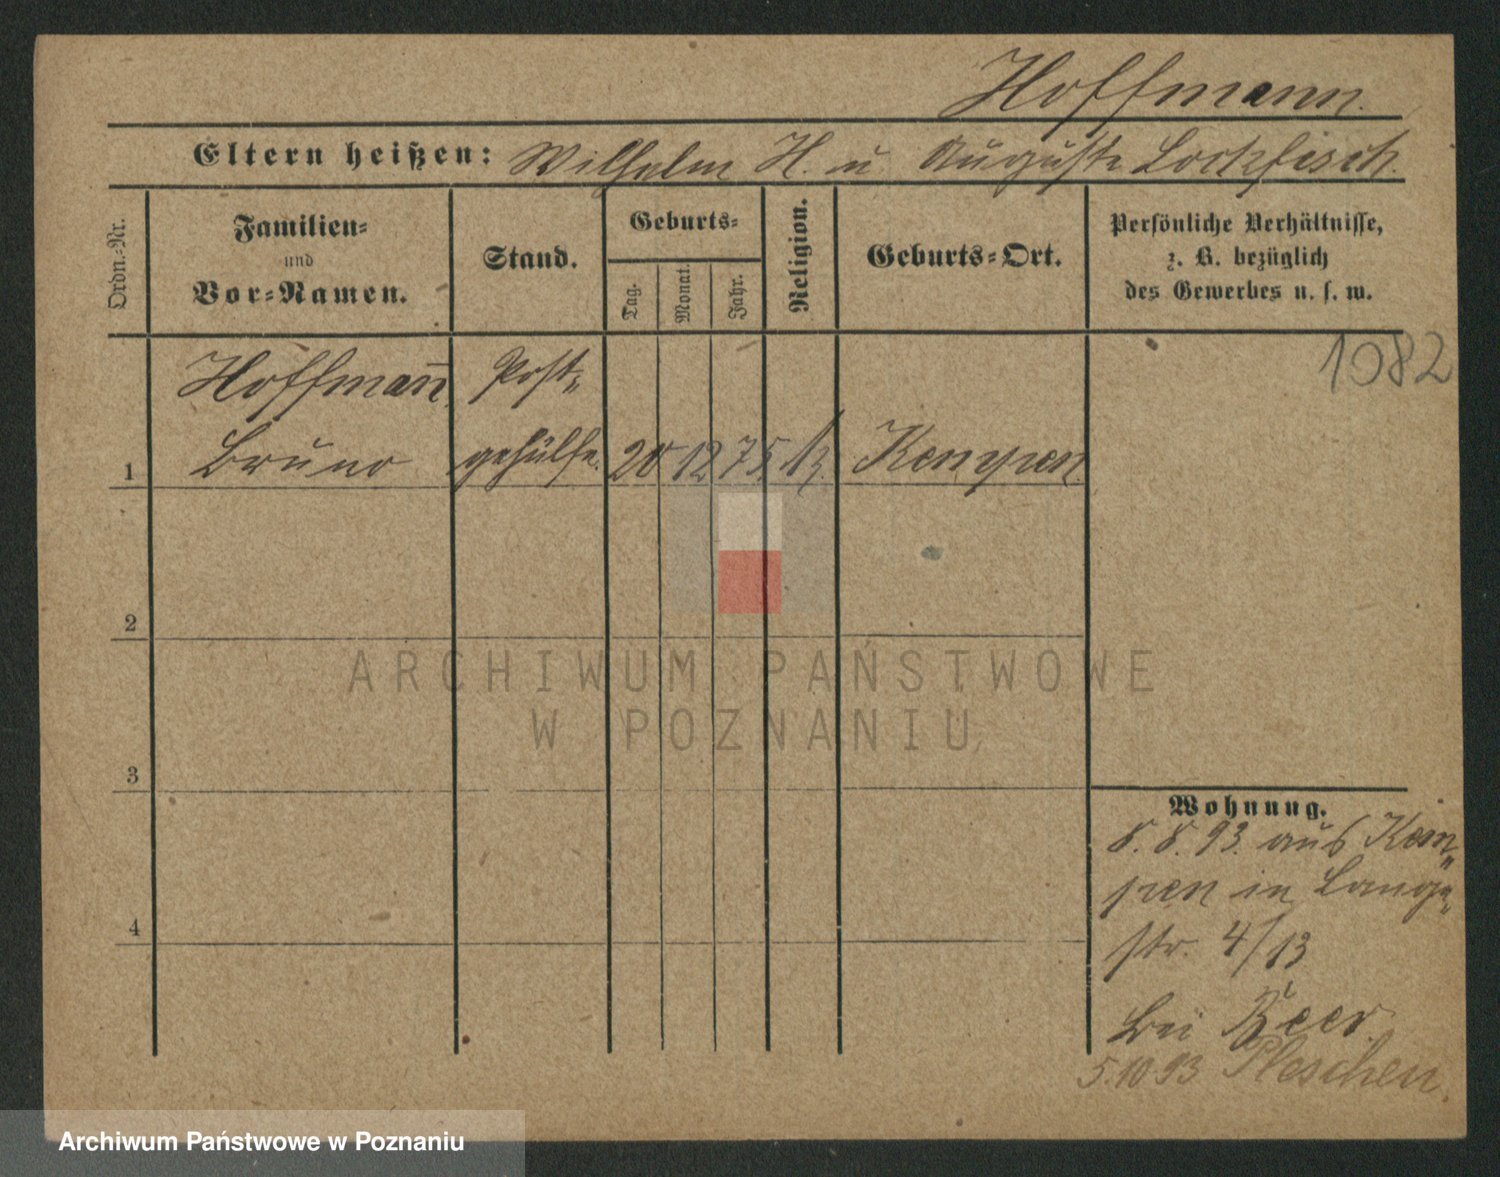 Hoffmann.
Eltern heißen: Wilhelm H. u. Auguste Lockfisch.
Ordn.-Nr.
Familien- und Vor-Namen.
Stand.
Geburts-
Tag. Monat. Jahr.
Religion.
Geburts-Ort.
Persönliche Verhältnisse,
z. B. bezüglich
des Gewerbes u. s. w.
1082
Hoffmann̄, Post-
1 Bruno gehülfe. 20 12 75. Kempen.
2
3
4
Wohnung.
8. 8. 93. aus Kem-
pen in Lange-
str. 4/13
bei Beer
5.10 93 Pleschen.
ARCHIWUM PAŃSTWOWE
W POZNANIU
Archiwum Państwowe w Poznaniu